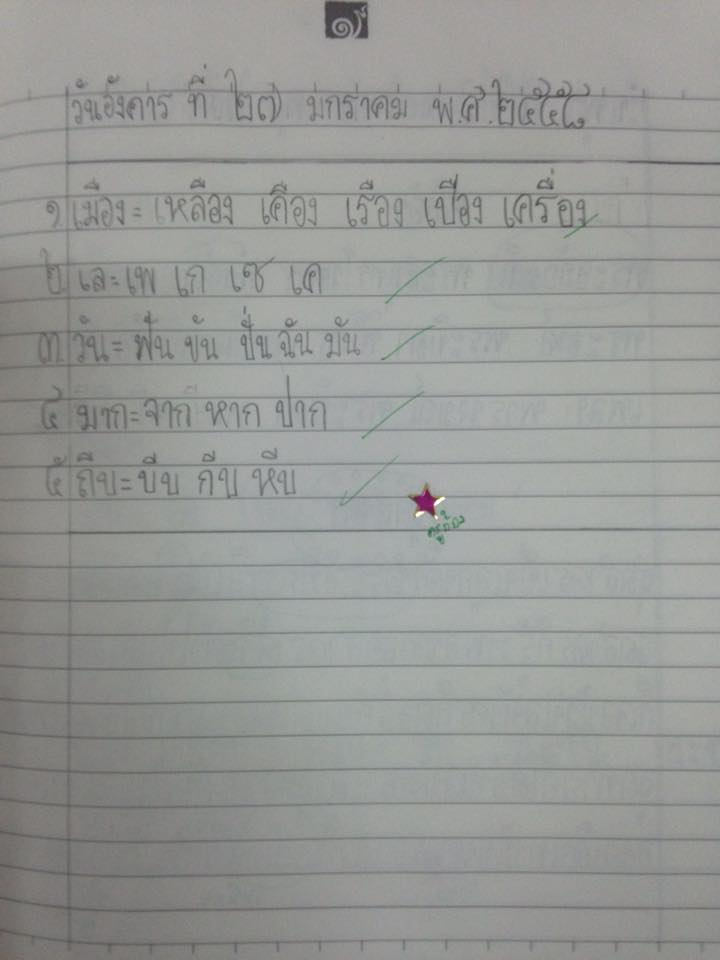 ๑
วันอังคาร ที่ ๒๗ มกราคม พ.ศ.๒๕๕๘
๑. เมือง = เหลือง เคือง เรือง เปือง เครื่อง
๒ เล = เพ เก เซ เค
๓ วัน = ฟัน ขัน ปั่น ฉัน มัน
๔ มาก = จาก หาก ปาก
๕ ถีบ = บีบ กีบ หีบ